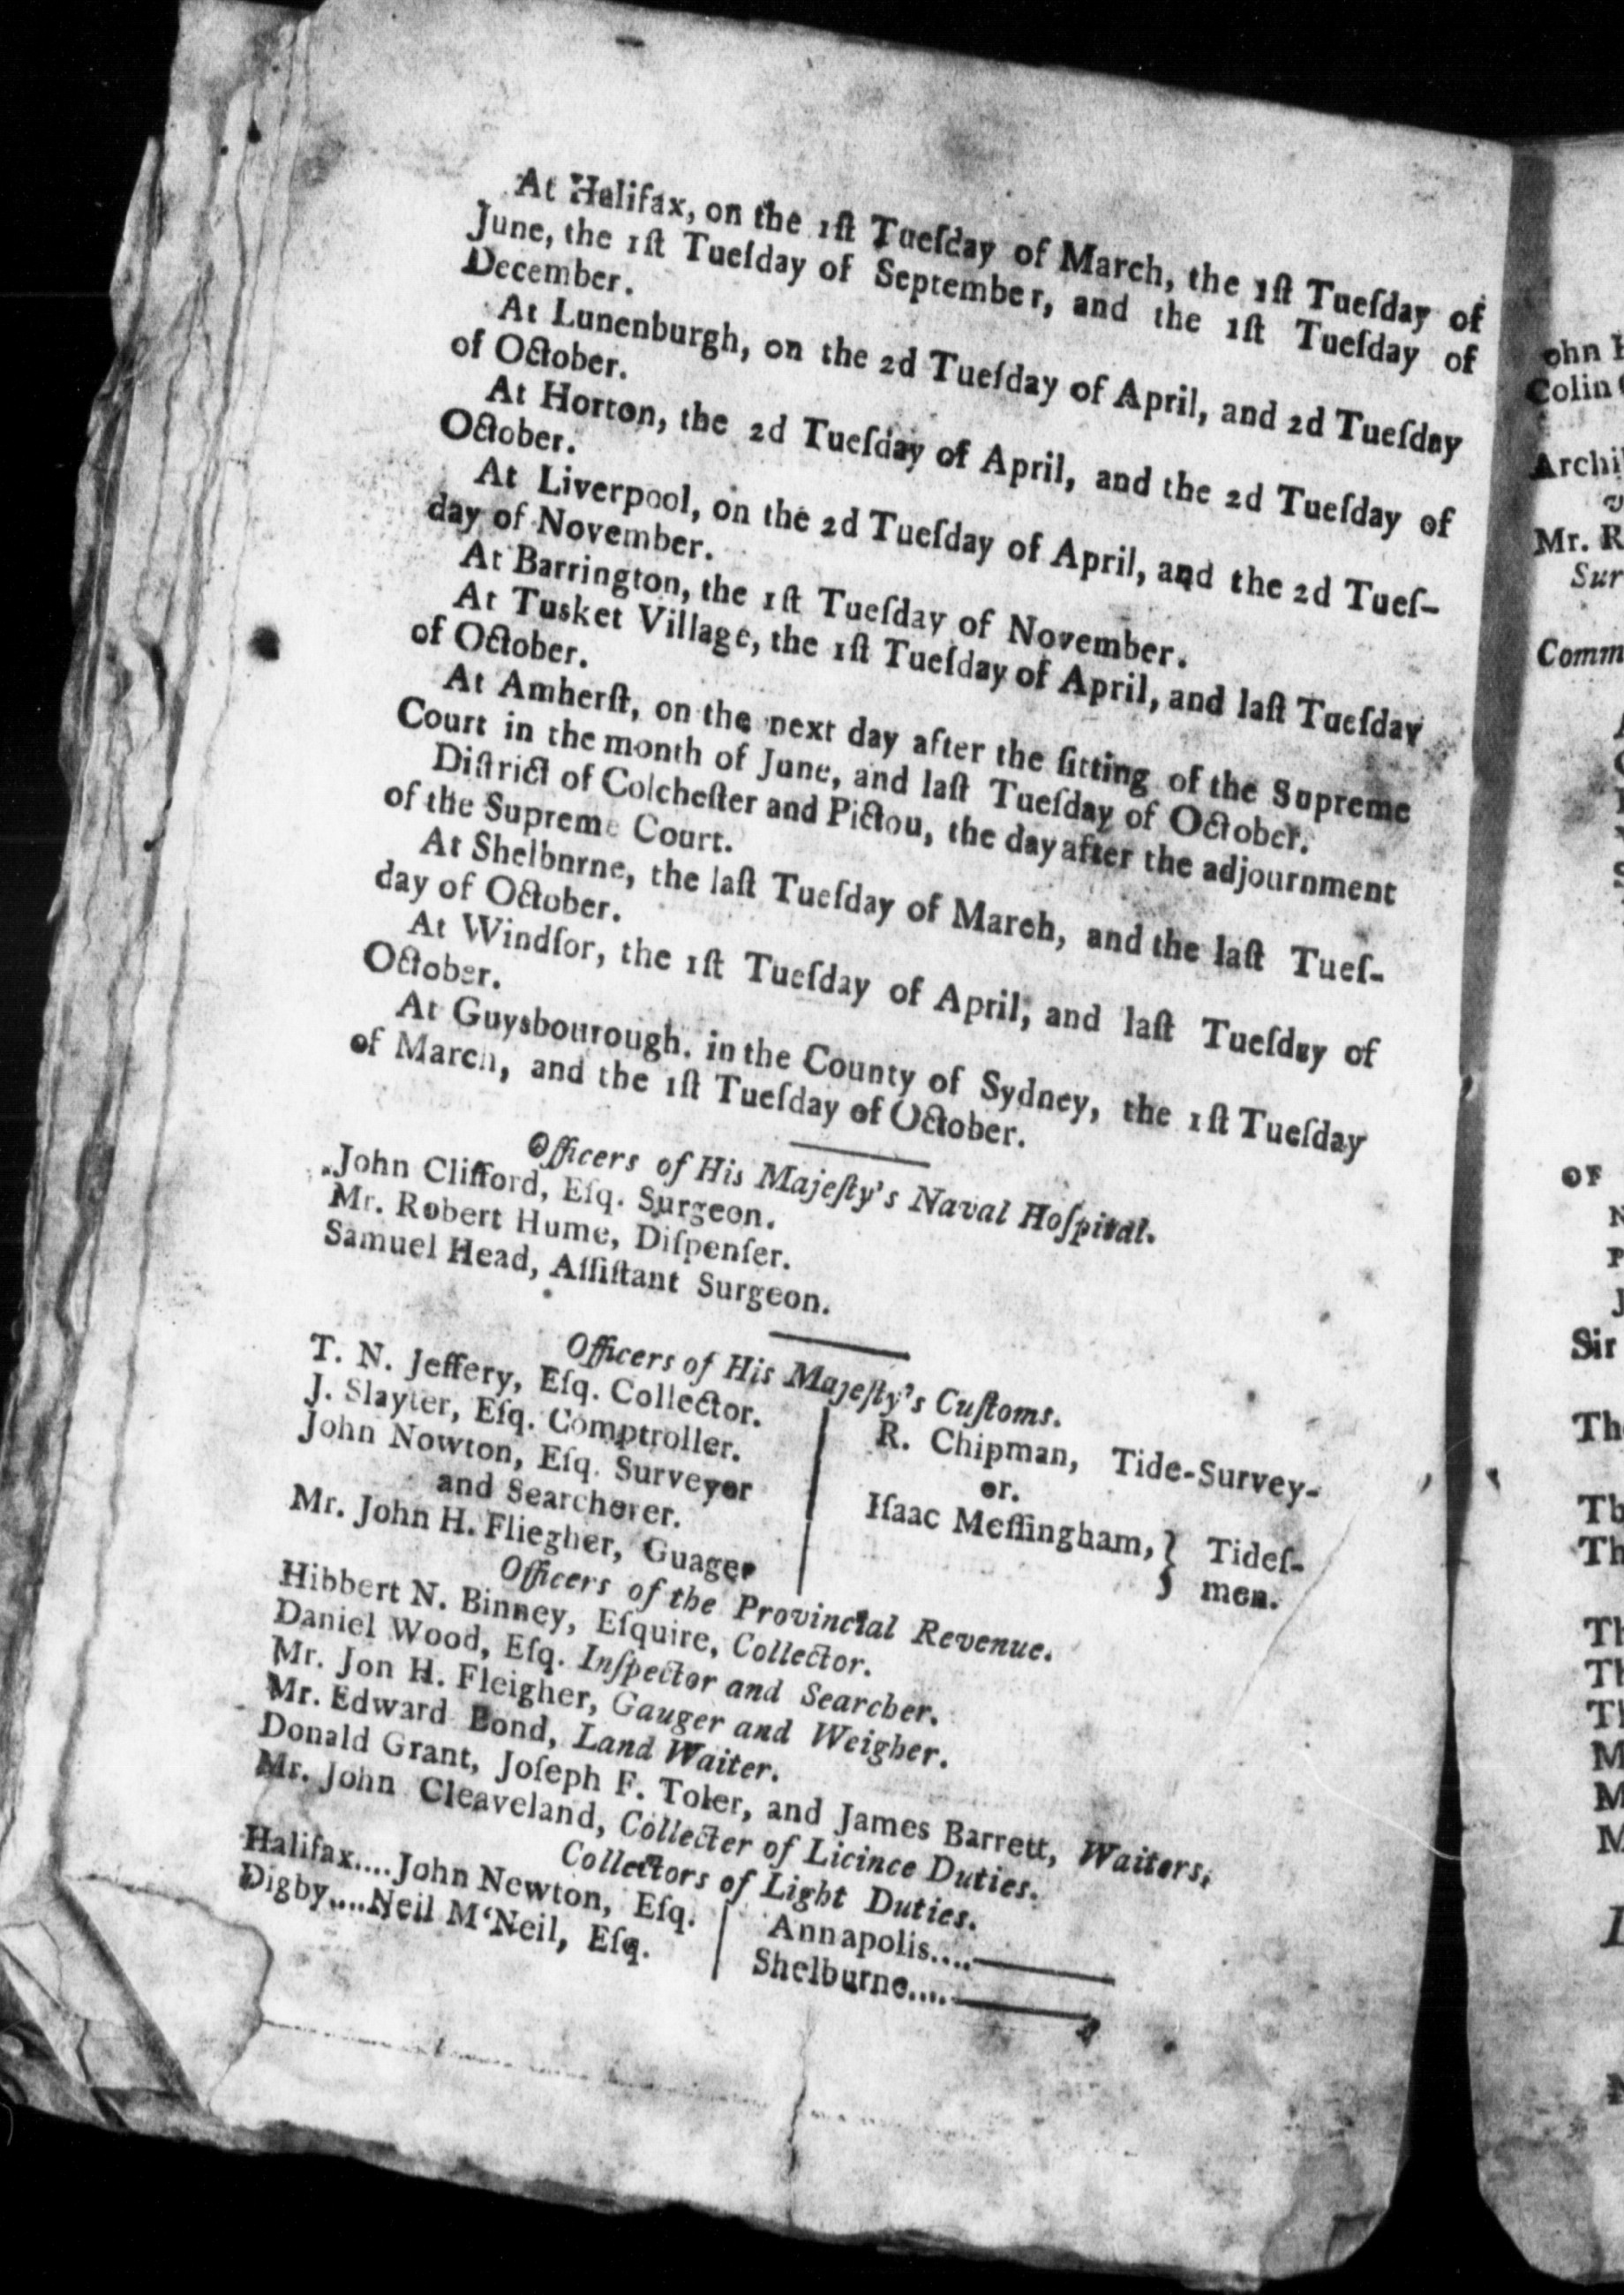 At Halifax, on the 1ſt Tueſday of March, the 1ſt Tueſday of
June, the 1ſt Tueſday of September, and the 1ſt Tueſday of
December.
At Lunenburgh, on the 2d Tueſday of April, and 2d Tueſday
of October.
At Horton, the 2d Tueſday of April, and the 2d Tueſday of
October.
At Liverpool, on the 2d Tueſday of April, and the 2d Tueſ-
day of November.
At Barrington, the 1ſt Tueſday of November.
At Tusket Village, the 1ſt Tueſday of April, and laſt Tueſday
of October.
At Amherſt, on the next day after the ſitting of the Supreme
Court in the month of June, and laſt Tueſday of October.
Diſtrict of Colcheſter and Pictou, the day after the adjournment
of the Supreme Court.
At Shelbnrne, the laſt Tueſday of March, and the laſt Tueſ-
day of October.
At Windſor, the 1ſt Tueſday of April, and laſt Tueſday of
October.
At Guysbourough. in the County of Sydney, the 1ſt Tueſday
of March, and the 1ſt Tueſday of October.
Officers of His Majeſty's Naval Hoſpital.
John Clifford, Eſq. Surgeon.
Mr. Robert Hume, Diſpenſer.
Samuel Head, Aſſiſtant Surgeon.
Officers of His Majeſty's Cuſtoms.
T. N. Jeffery, Eſq. Collector.
J. Slayter, Eſq. Comptroller.
John Nowton, Eſq. Surveyor
and Searcherer.
Mr. John H. Fliegher, Guager
R. Chipman, Tide-Survey-
or.
Iſaac Meſſingham, } Tideſ-
} men.
Officers of the Provincial Revenue.
Hibbert N. Binney, Eſquire, Collector.
Daniel Wood, Eſq. Inſpector and Searcher.
Mr. Jon H. Fleigher, Gauger and Weigher.
Mr. Edward Bond, Land Waiter.
Donald Grant, Joſeph F. Toler, and James Barrett, Waiters,
Mr. John Cleaveland, Collecter of Licince Duties.
Collectors of Light Duties.
Halifax....John Newton, Eſq.
Digby....Neil M‘Neil, Eſq.
Annapolis....
Shelburne....
ohn
Colin
Archi
Mr. R
Sur
Comm
OF
Sir
Th
Th
Th
Th
Th
Th
M
M
M